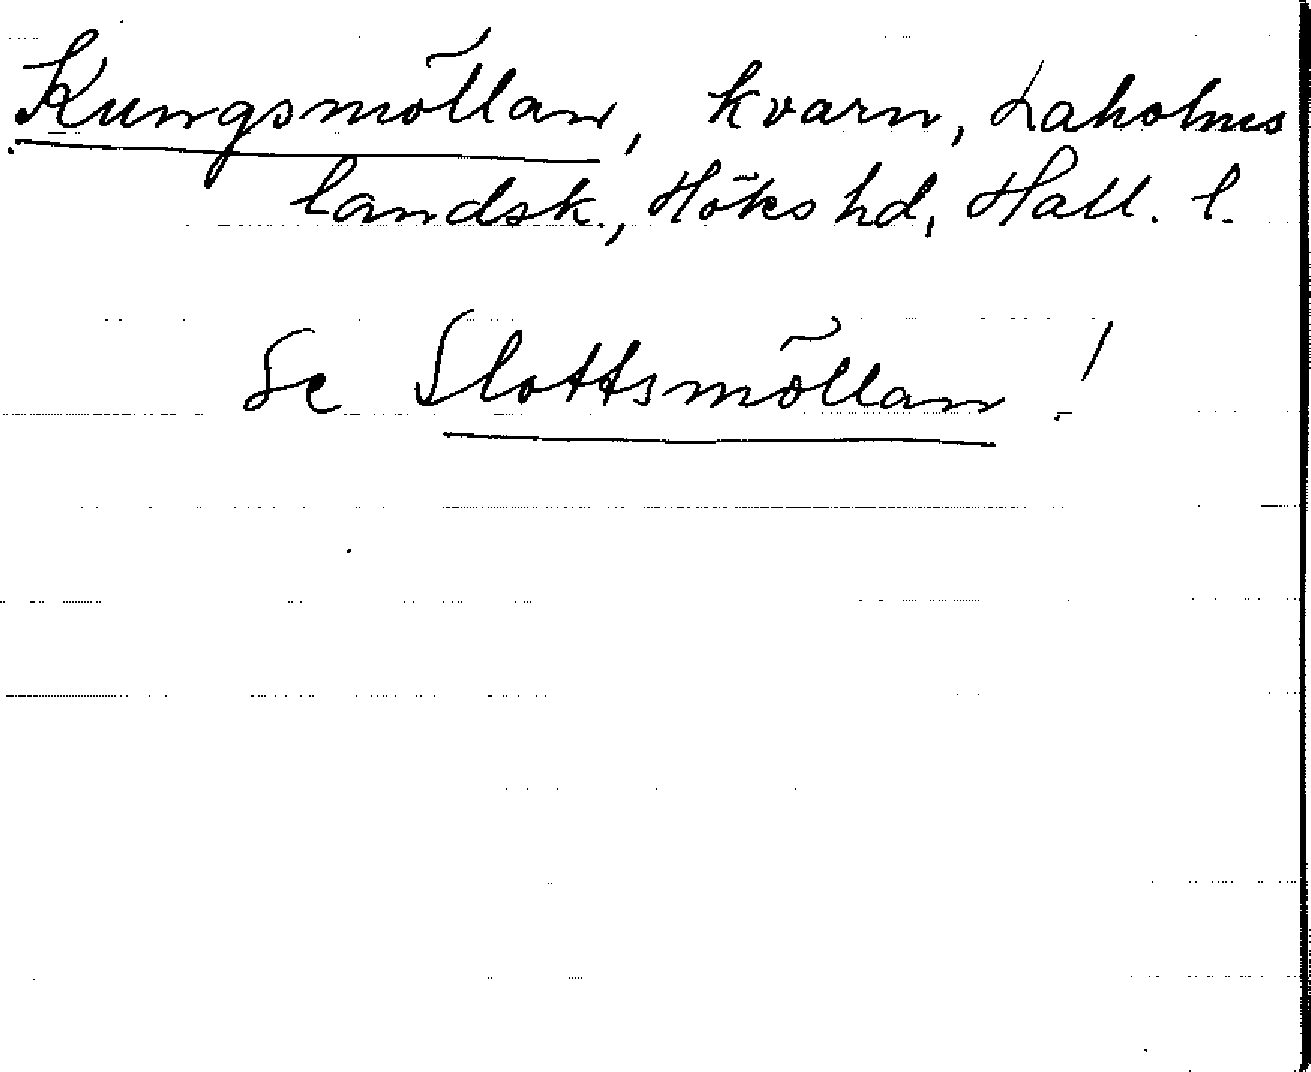 Kungsmöllan, kvarn, Laholms
landsk., Höks hd, Hall. l.
Se Slottsmöllan!